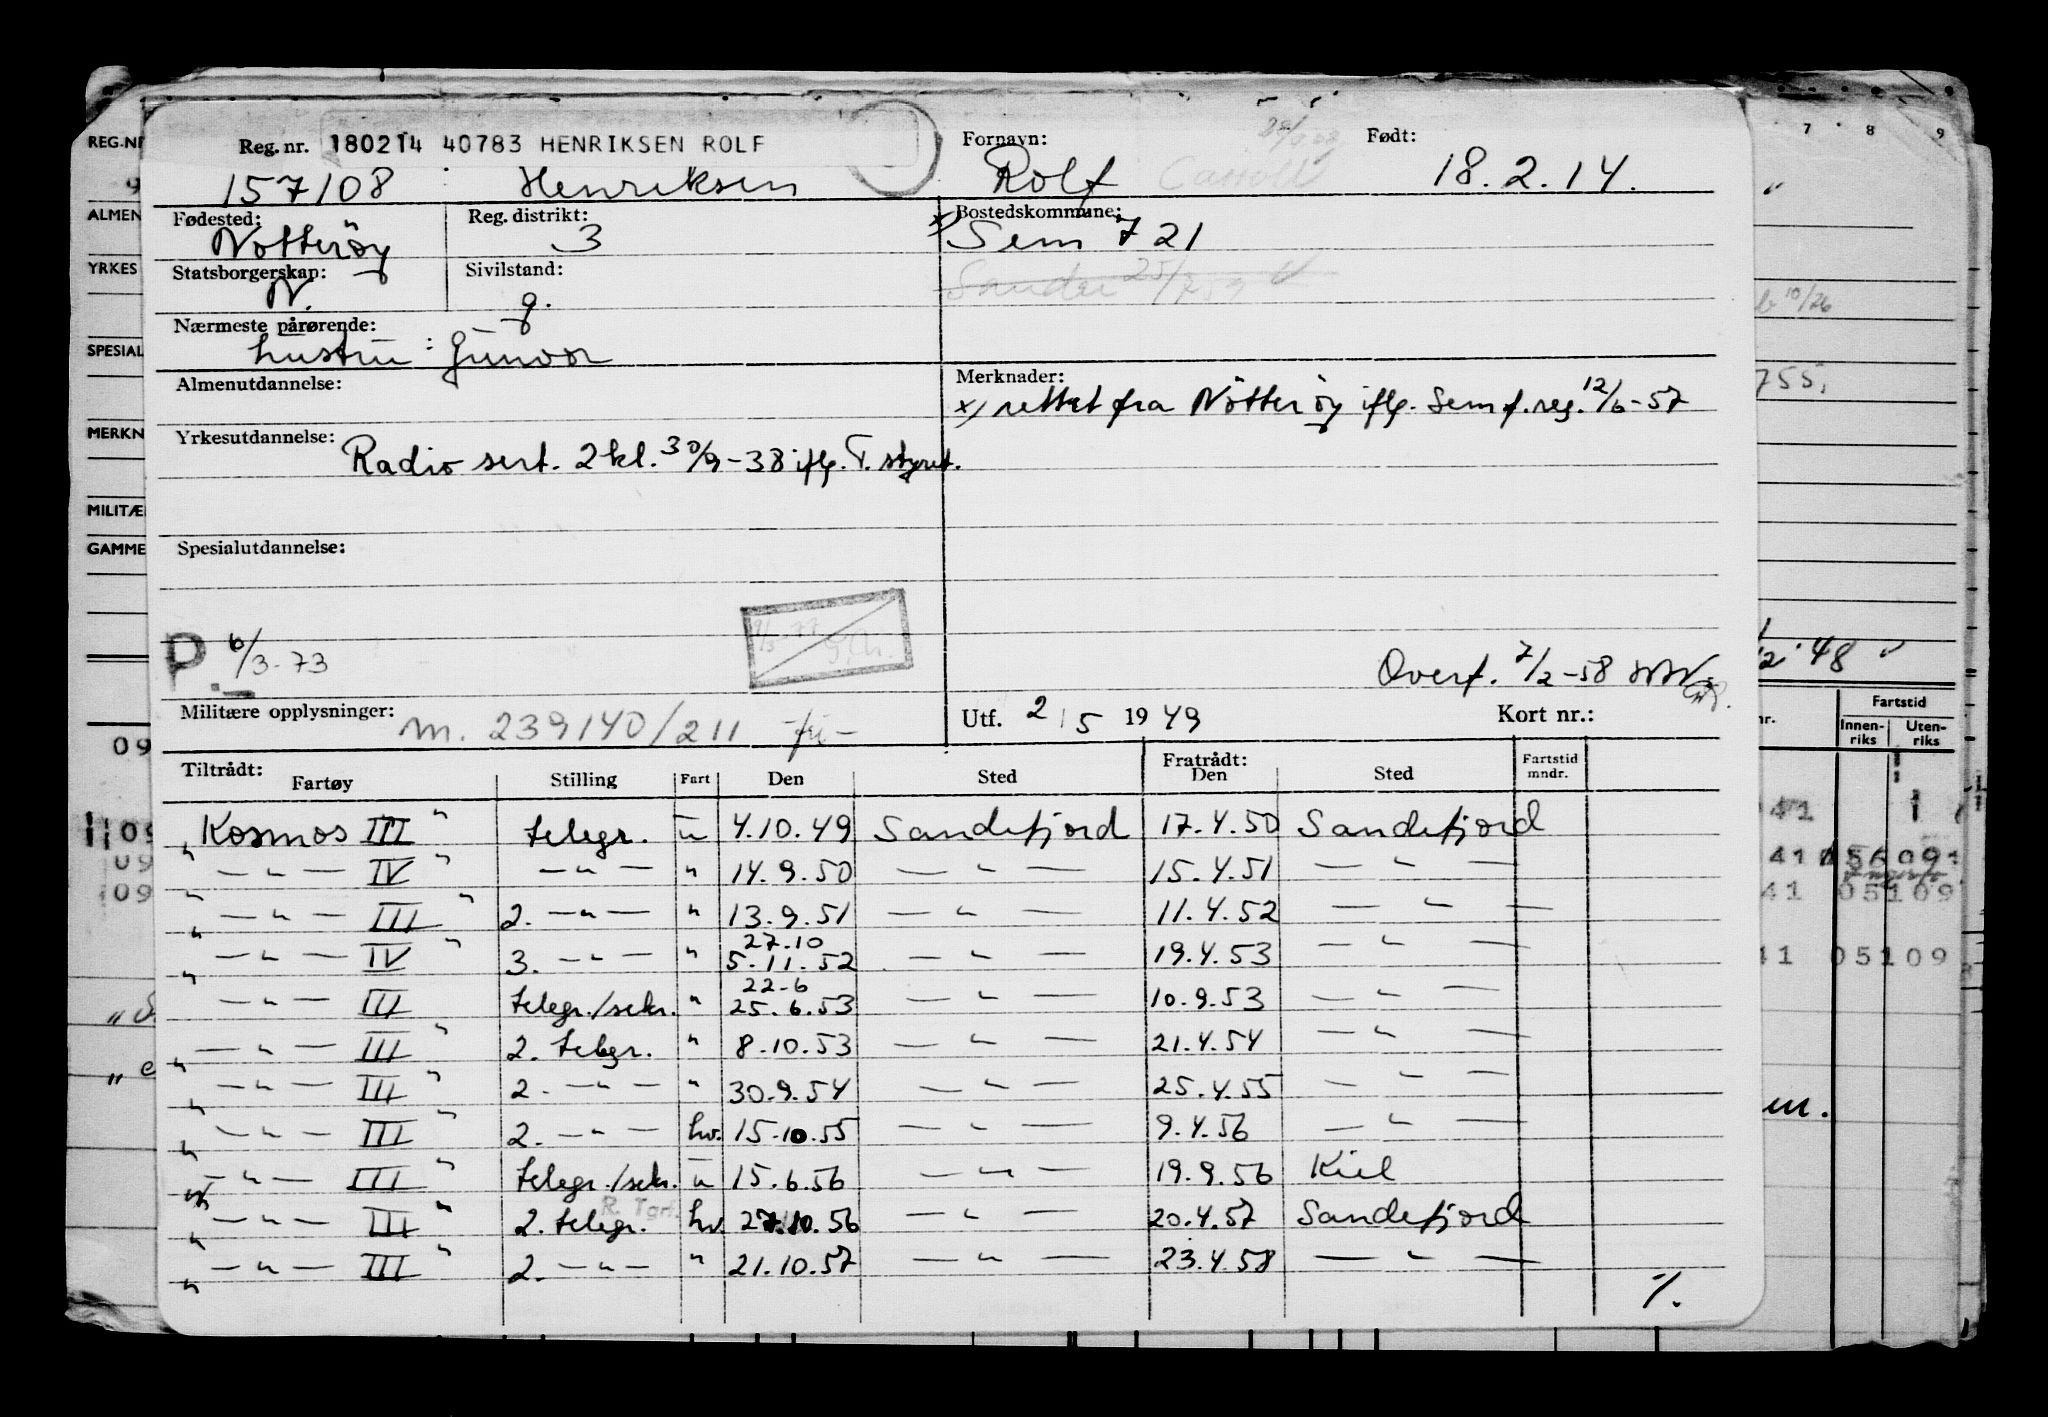 Reg. nr. 180214 40783 HENRIKSEN ROLF Fornavn: Født:
157108 Henriksen Rolf 18.2.14.
Fødested: Reg. distrikt: Bostedskommune:
Nötteröy 3 x) Sem 721
Statsborgerskap: Sivilstand:
N. g.
Nærmeste pårørende:
hustru: Gunvor
Almenutdannelse: Merknader:
x) rettet fra Nötteröy iflg. Sem f.reg. 12/6-57
Yrkesutdannelse:
Radio sert. 2 kl. 30/9-38 iflg. T. styret.
Spesialutdannelse:
P. 6/3-73
Overf. 7/2-58
Militære opplysninger: m. 239140/211 Utf. 2/5 1949 Kort nr.:
Tiltrådt: Fratrådt: Fartstid
Fartøy Stilling Fart Den Sted Den Sted mndr.
" Kosmos III " telegr. u 4.10.49 Sandefjord 17.4.50 Sandefjord
" — " — IV " — " — " 14.9.50 — " — 15.4.51 — " —
" — " — III " 2. — " — " 13.9.51 — " — 11.4.52 — " —
27.10
" — " — IV " 3. — " — " 5.11.52 — " — 19.4.53 — " —
22-6
— " — III telegr./sekr. " 25.6.53 — " — 10.9.53 — " —
" — " — III " 2. telegr. " 8.10.53 — " — 21.4.54 — " —
" — " — III " 2. — " — " 30.9.54 — " — 25.4.55 — " —
" — " — III " 2. — " — hv. 15.10.55 — " — 9.4.56 — " —
— " — III " telegr./sekr. u 15.6.56 — " — 19.9.56 Kiel
R. Tgrf.
" — " — III " 2. telegr. hv. 27.10.56 — " — 20.4.57 Sandefjord
" — " — III " 2. — " — " 21.10.57 — " — 23.4.58 — " —
·/.
REG.NR
ALMEN
YRKES
SPESIAL
MERKN
MILITÆ
GAMME
09
09
09
09
7 8 9
10/26
755,
48
nr. Fartstid
Innen-riks Uten-riks
41
41 056091
41 05109
41 05109